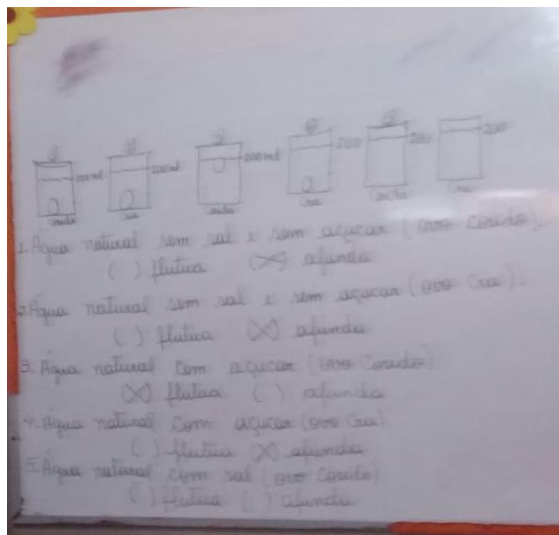 200ml 200ml 200ml 200 200 200
Cosido Cru Cosido Cru Cosido Cru
1. Água natural sem sal e sem açucar (ovo Cosido).
( ) flutua (X) afunda
2. Água natural sem sal e sem açucar (ovo Cru).
( ) flutua (X) afunda
3. Água natural com açucar (ovo Cosido)
(X) flutua ( ) afunda
4. Água natural com açucar (ovo Cru)
( ) flutua (X) afunda
5. Água natural com sal (ovo Cosido)
( ) flutua ( ) afunda